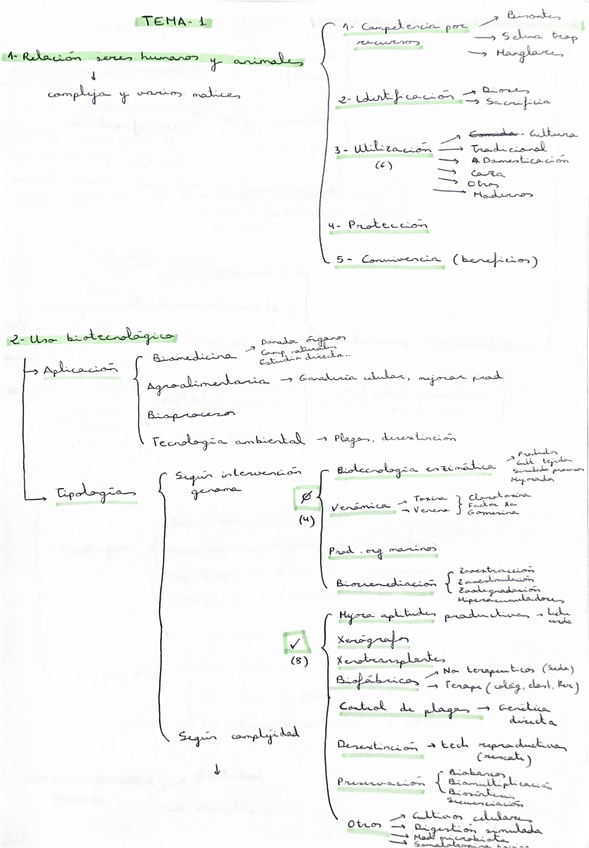 TEMA-1
1- Relación seres humanos y animales
↓
compleja y varios matices
1- Competencia por → Bisontes
recursos → Selva trop
→ Manglares
2- Identificación → Dioses
→ Sacrificio
3- Utilización → Comida - Cultura
(6) → Tradicional
→ Domesticación
→ Caza
→ Otros
→ Modernos
4- Protección
5- Convivencia (beneficios)
2- Uso biotecnológico
→ Aplicación
Biomedicina → Donada órganos
Comp naturales
Estudio directa...
Agroalimentaria → Ganadería celular, mejorar prod
Bioprocesos
Tecnología ambiental → Plagas, desextinción
→ Tipologías
Según intervención
genoma
∅
(4)
Biotecnología enzimática → Productos
Cult tejidos
Mejorados
Venómica → Toxina } Clorotoxina
→ Veneno } Factor Xa
Gomesina
Prod. org marinos
Biorremediación { Zooextracción
Zooestimulación
Zoodegradación
Hiperacumuladores
✓
(8)
Mejora aptitudes productivas → leche
Xenógrafos
Xenotransplantes
Biofábricas → No terapeuticos (Seda)
→ Terape (colág, elast, Ker)
Control de plagas → Genética
directa
Desextinción → tech reproductivas
(rescate)
Preservación { Biobancos
Biomultiplicación
Biosíntesis
Secuenciación
Otros → Cultivos celulares
→ Digestión simulada
→ Mod microbiota
→ Somatotropina
Según complejidad
↓